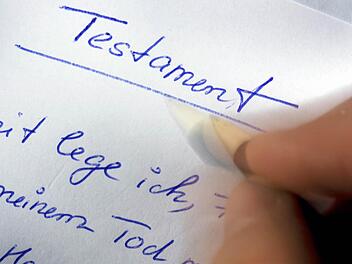 Testament
it lege ich,
meinem Tod